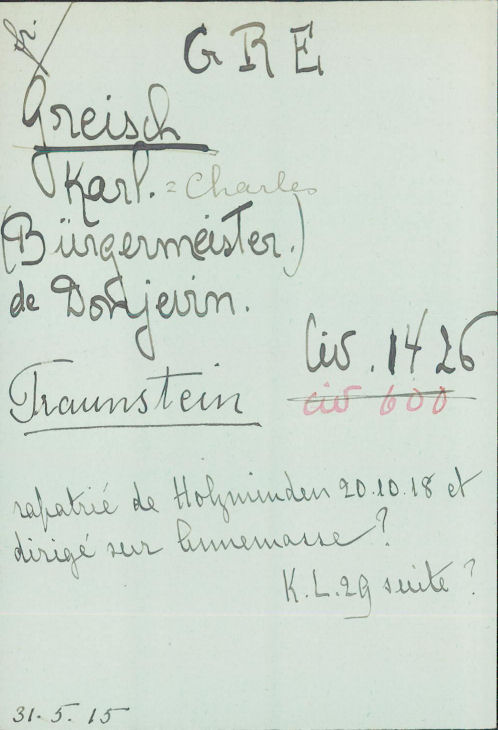 fr.
GRE
Greisch
Karl. = Charles
(Bürgermeister.)
de Domjevin.
Civ. 1426
Traunstein
civ 600
rapatrié de Holzminden 20.10.18 et
dirigé sur Annemasse?
K.L.29 suite?
31.5.15